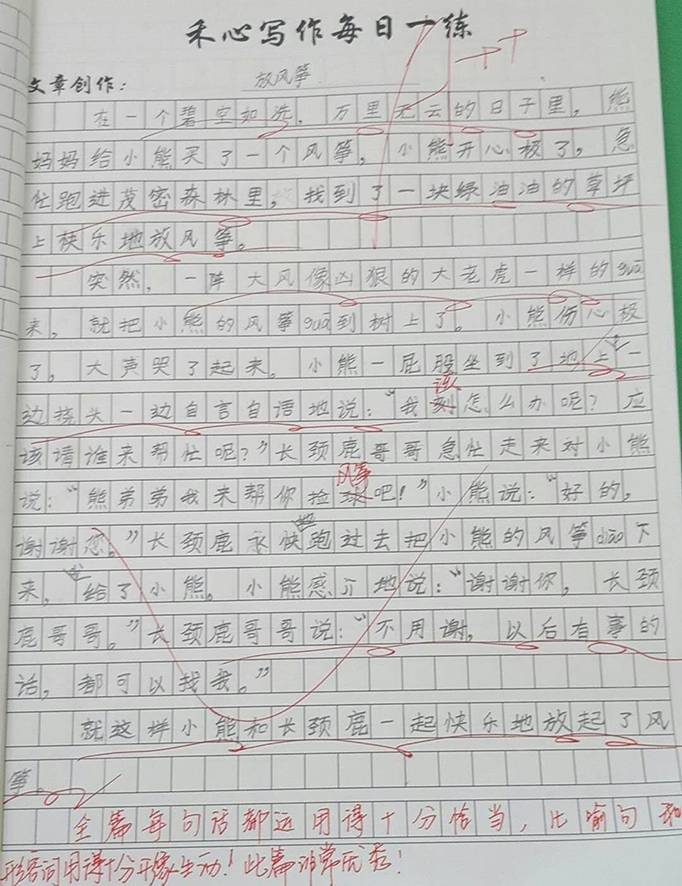 禾心写作每日一练
文章创作：放风筝
在一个碧空如洗，万里无云的日子里，熊
妈妈给小熊买了一个风筝，小熊开心极了，急
忙跑进茂密森林里，找到了一块绿油油的草坪
上快乐地放风筝。
突然，一阵大风像凶狠的大老虎一样的guā
来，就把小熊的风筝guā到树上了。小熊伤心极
了，大声哭了起来。小熊一屁股坐到了地上一
边挠头一边自言自语地说：“我该怎么办呢？应
该请谁来帮忙呢？”长颈鹿哥哥急忙走来对小熊
说：“熊弟弟我来帮你捡风筝吧！”小熊说：“好的，
谢谢您。”长颈鹿永快地跑过去把小熊的风筝diāo下
来，给了小熊。小熊感地说：“谢谢你，长颈
鹿哥哥。”长颈鹿哥哥说：“不用谢，以后有事的
话，都可以找我。”
就这样小熊和长颈鹿一起快乐地放起了风
筝。
全篇每句话都运用得十分恰当，比喻句和
形容词用得十分形像生动！此篇非常优秀！